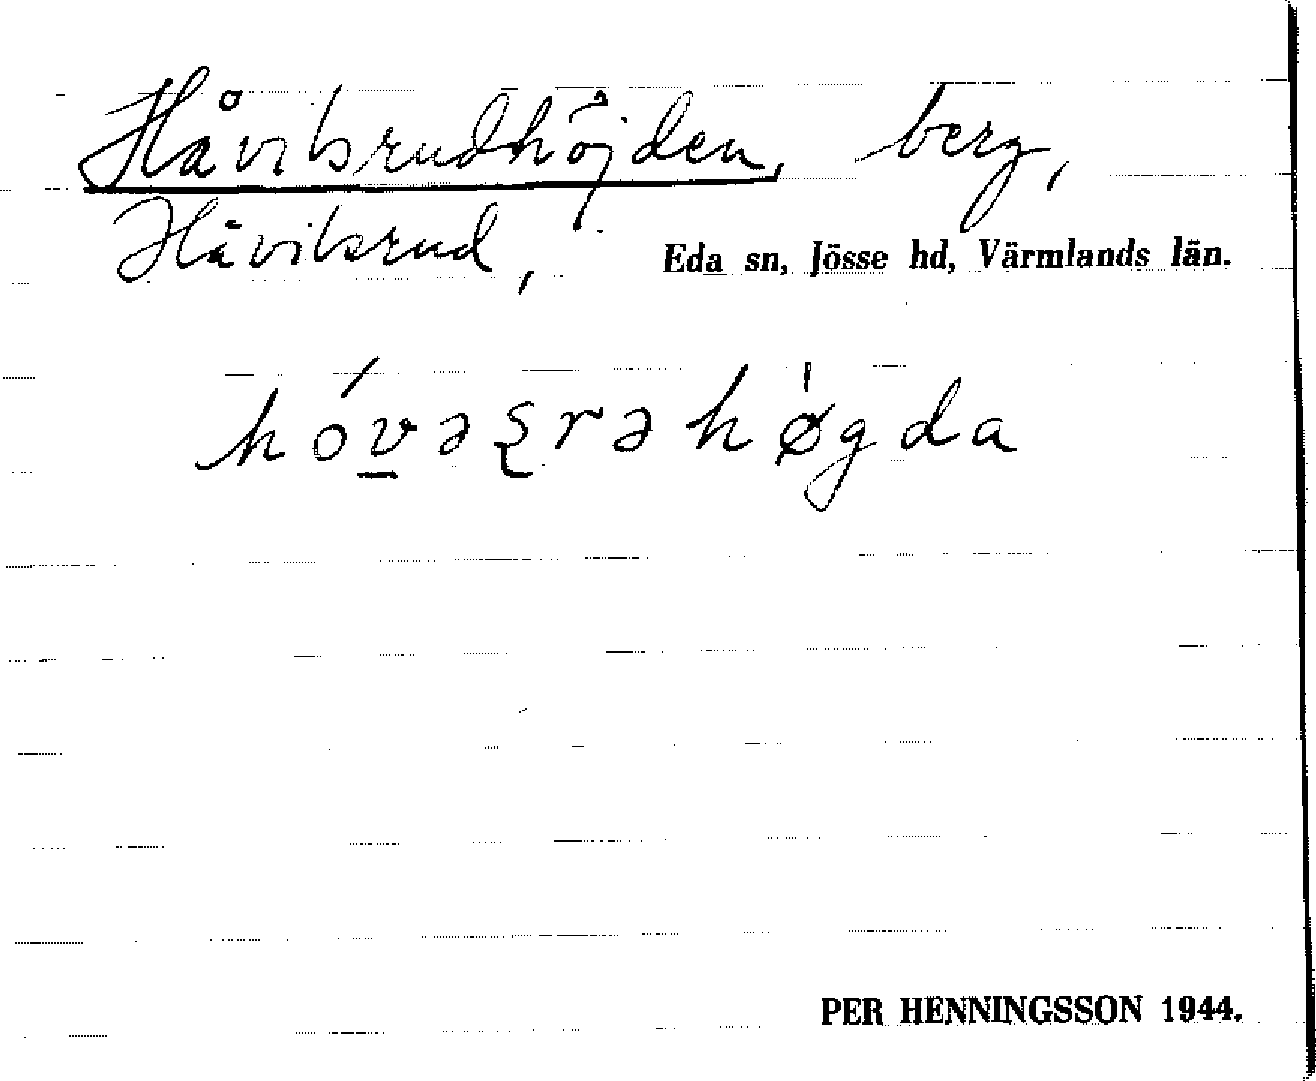 Håvilsrudhöjden, berg,
Håvilsrud, Eda sn, Jösse hd, Värmlands län.
hóv̲əʂrəhøgda
PER HENNINGSSON 1944.